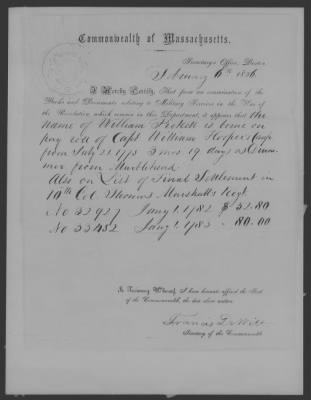 Commonwealth of Massachusetts.
Secretary's Office, Boston
February 6th 1856
I Hereby Certify, That from an examination of the
Books and Documents relating to Military Service in the War of
the Revolution, which remain in this Department, it appears that the
name of William is borne on
pay roll of Capt William Hooper's Comp
from July 21 1775 5 mos 19 days as
from Marblehead.
Also on List of Final Settlement in
10th Col Thomas Marshalls Regt
No 32927 Jany 1, 1782 $ 52.80
No 33452 Jany 1, 1783 - 80.00
In Testimony Whereof, I have hereunto affixed the Seal
of the Commonwealth, the date above written.
Francis DeWitt
Secretary of the Commonwealth